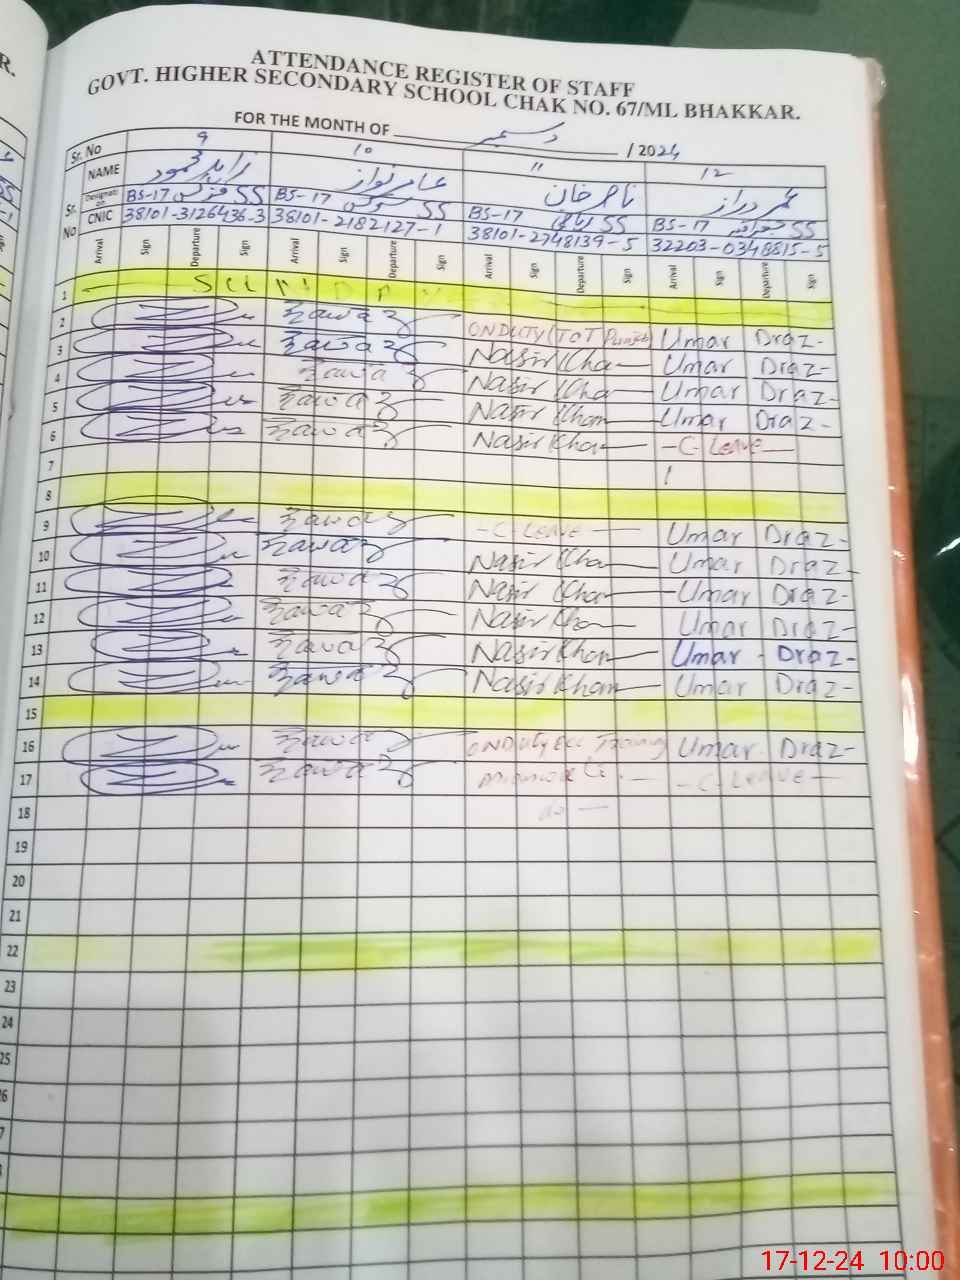 R.
ATTENDANCE REGISTER OF STAFF
GOVT. HIGHER SECONDARY SCHOOL CHAK NO. 67/ML BHAKKAR.
FOR THE MONTH OF دسمبر / 2024
Sr. No 9 10 11 12
NAME زاہد محمود عامر نواز ناصر خان عمر دراز
Sr. No Designation BS-17 SS فزکس BS-17 SS BS-17 SS ریاضی BS-17 SS
CNIC 38101-3126436-3 38101-2182127-1 38101-2748139-5 32203-0348815-5
Arrival Sign Departure Sign Arrival Sign Departure Sign Arrival Sign Departure Sign Arrival Sign Departure Sign
1 SUNDAY
2 Nawaz ON DUTY (TOT Punjab) Umar Draz
3 Nawaz Nasir Khan Umar Draz
4 Nawaz Nasir Khan Umar Draz
5 Nawaz Nasir Khan Umar Draz
6 Nawaz Nasir Khan -C-Leave-
7
8
9 Nawaz -C-LEAVE- Umar Draz
10 Nawaz Nasir Khan Umar Draz
11 Nawaz Nasir Khan Umar Draz
12 Nawaz Nasir Khan Umar Draz
13 Nawaz Nasir Khan Umar Draz
14 Nawaz Nasir Khan Umar Draz
15
16 Nawaz ON Duty Training Umar Draz
17 Nawaz -C-LEAVE-
18 do
19
20
21
22
23
24
25
26
17-12-24 10:00